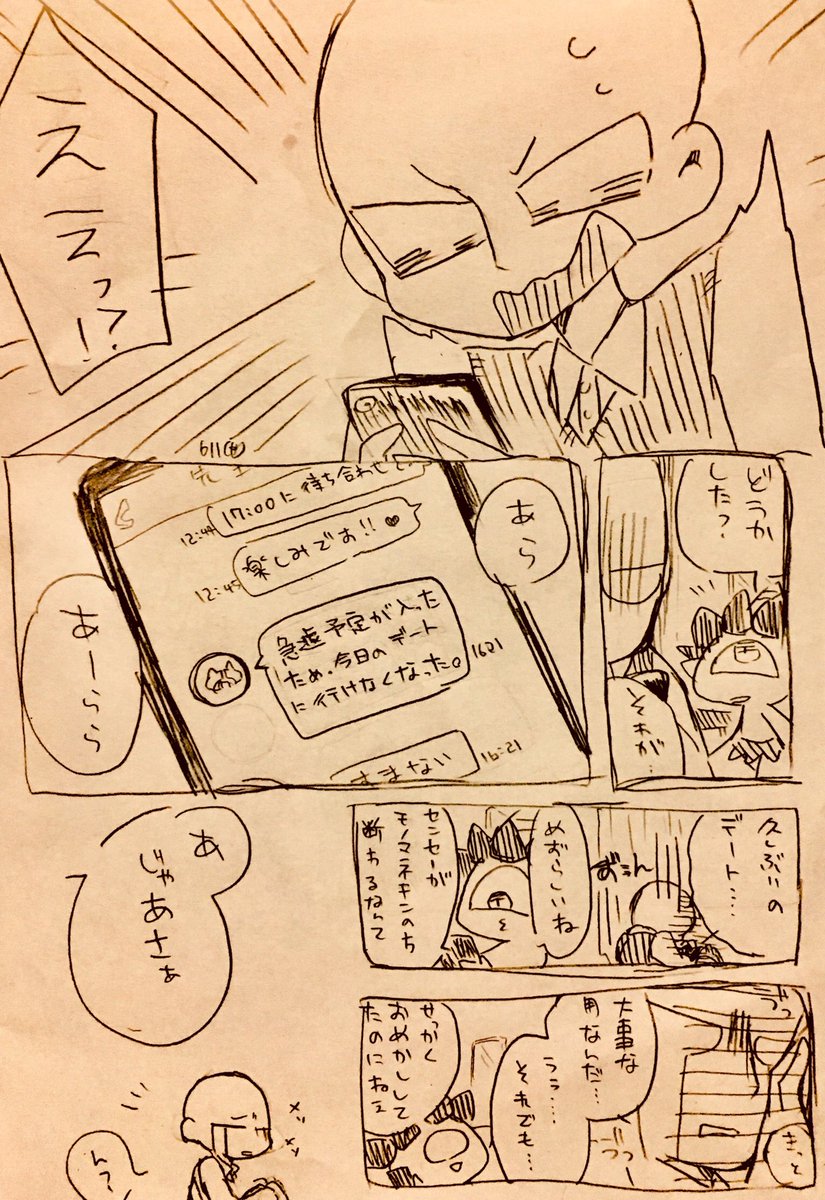 ええっ?!
どうか
した?
それが…
あら
6/1(土)
17:00に待ち合わせ
12:44
楽しみです!!♥
12:45
急遽予定が入った
ため、今日のデート
に行けなくなった。
16:21
すまない
16:21
あーらら
久しぶりの
デート……
ずーん
めずらしいね
センセーが
モノマネキンのち
断わるなんて
きっと
大事な
用なんだ…
うう……
それでも…
せっかく
おめかしして
たのにねェ
あ
じゃあさぁ
メソ
メソ
ん?